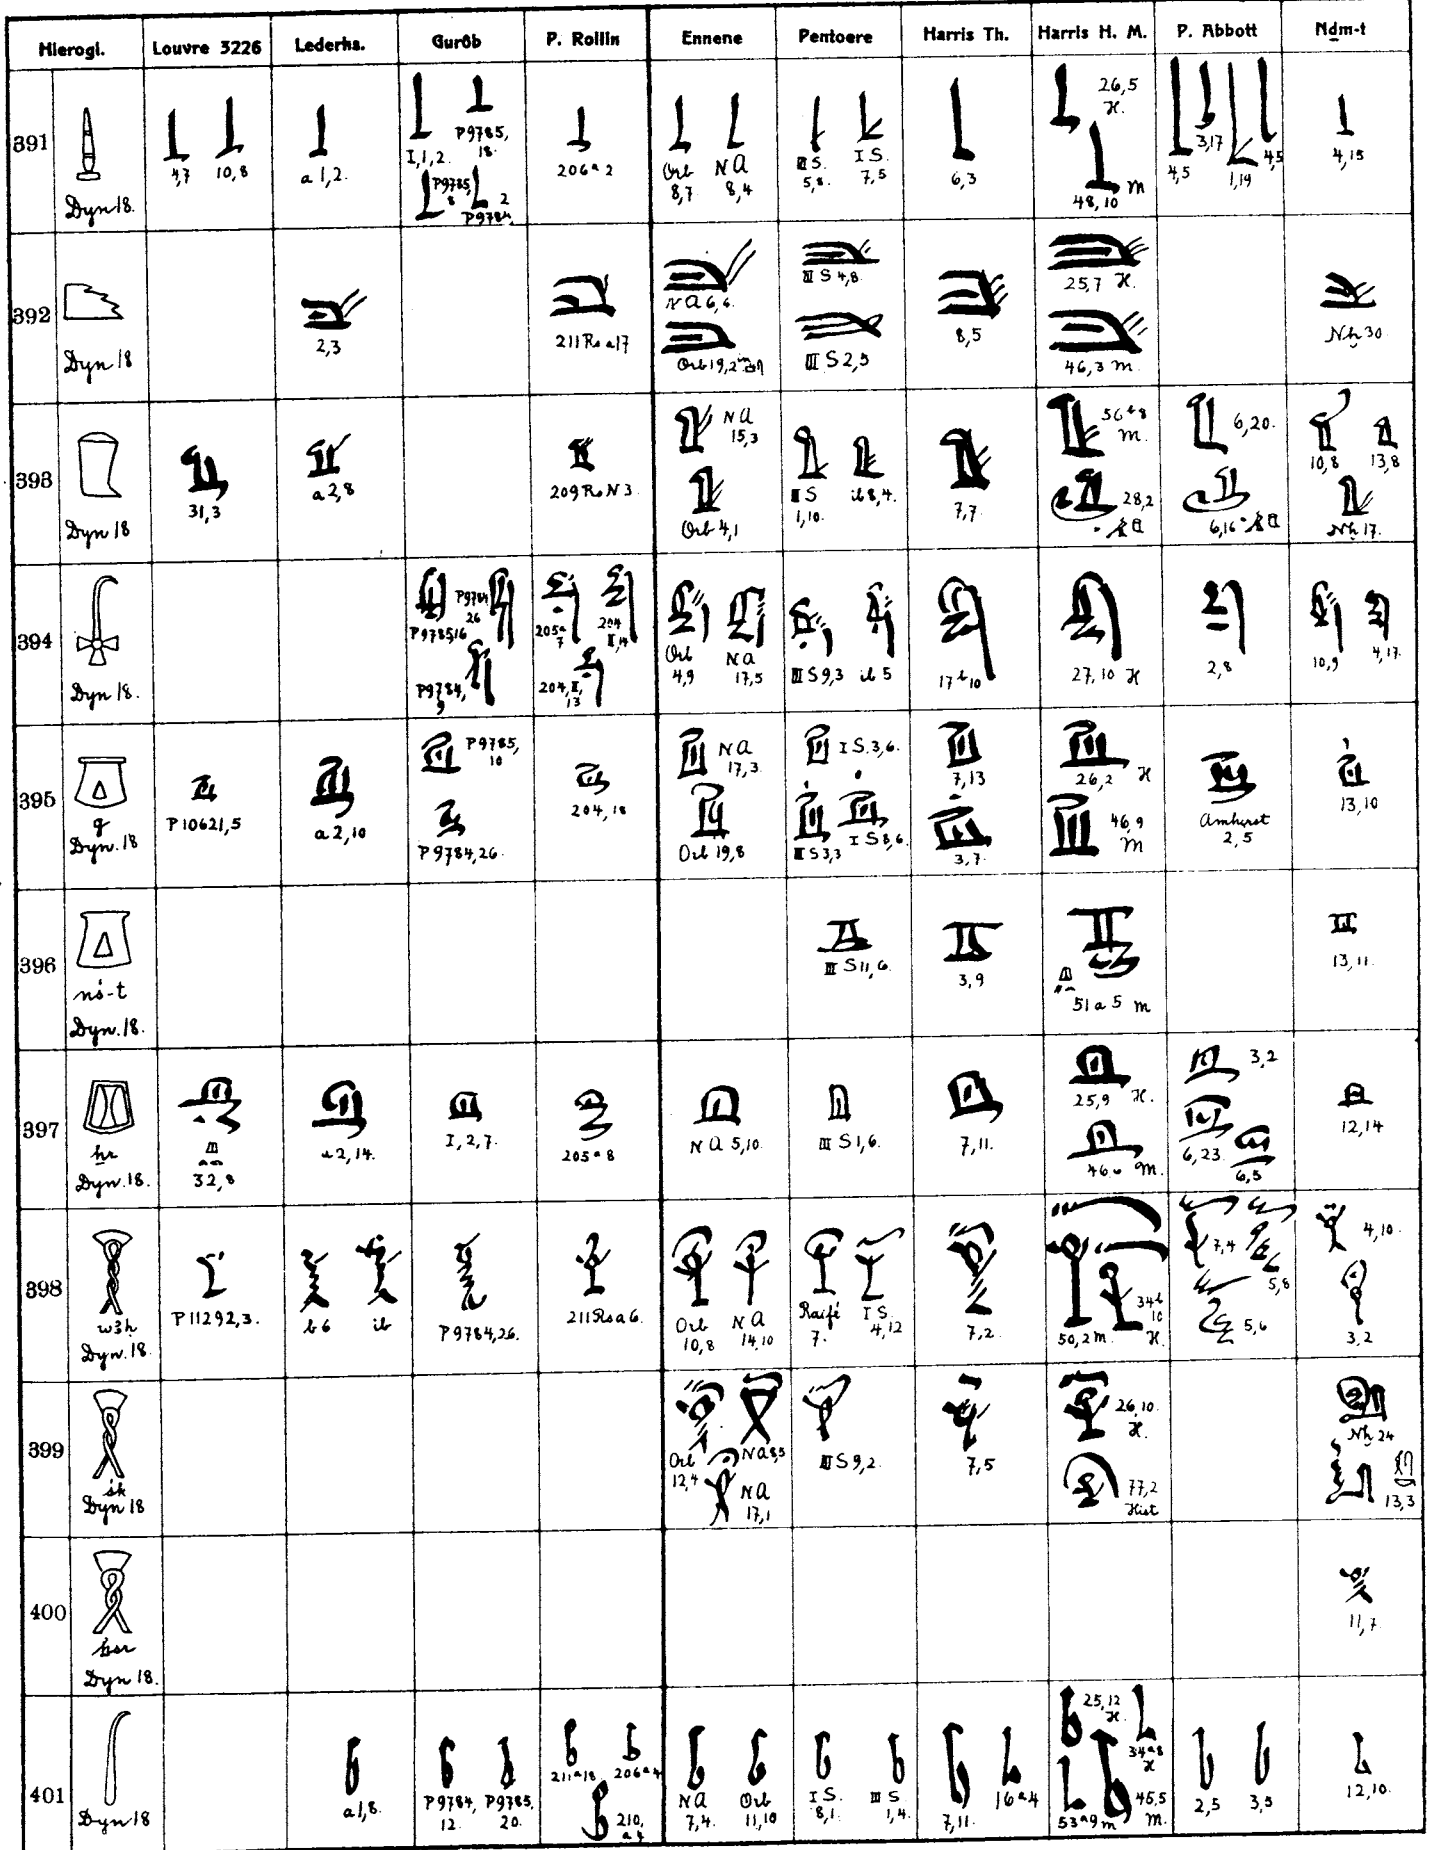 Hierogl. Louvre 3226 Lederhs. Gurôb P. Rollin Ennene Pentoere Harris Th. Harris H. M. P. Abbott Nḏm-t
391
Dyn 18.
4,7 10,8
a 1,2.
I,1,2. P9785, 18.
P9785, 8 2 P9784,
206 a 2
Orb 8,7 NA 8,4
III S. 5,8. I S. 7,5
6,3
26,5 H.
48,10 M
4,5 3,17 1,19 4,5
4,15
392
Dyn 18
2,3
211 Rs a 17
NA 6,6.
Orb 19,2
III S 4,8.
III S 2,5
8,5
25,7 H.
46,3 M.
Nḫ 30
393
Dyn 18
31,3
a 2,8
209 Rs N 3.
NA 15,3
Orb 4,1
III S 1,10. ib 8,4.
7,7.
56 b 8 M.
28,2
6,20.
6,16
10,8 13,8
Nḫ 17.
394
Dyn 18.
P9785,16 P9784 26
P9784, 9
205a 7 204 II,14
204, II, 13
Orb 4,9 NA 17,5
III S 9,3 ib 5
17 b 10
27,10 H
2,8
10,9 4,17.
395
g
Dyn. 18
P 10621,5
a 2,10
P9785, 10
P9784,26.
204,18
NA 17,3.
Orb 19,8
I S.3,6.
III S 3,3 I S 8,6.
7,13
3,7.
26,2 H
46,9 M
Amherst 2,5
13,10
396
nś-t
Dyn. 18.
III S 11,6.
3,9
51 a 5 M
13,11.
397
ẖr
Dyn. 18.
32,8
a 2,14.
I,2,7.
205 a 8
NA 5,10.
III S 1,6.
7,11.
25,9 H.
46,6 M.
3,2
6,23. 6,5
12,14
398
w3ḥ
Dyn. 18.
P 11292,3.
b 6 ib
P9784,26.
211 Rs a 6.
Orb 10,8 NA 14,10
Raifé 7. I S. 4,12
7,2.
50,2 M. 34 b 10 H.
7,4 5,8
5,6
4,10.
3,2
399
śk
Dyn 18
Orb 12,4 NA 8,5
NA 17,1
III S 9,2.
7,5
26,10. H.
77,2 Hist
Nḫ 24
13,3
400
Dyn 18.
11,7.
401
Dyn 18
a 1,8.
P9784, 12. P9785, 20.
211 a 18 206 a 4
210, a 4
NA 7,4. Orb 11,10
I S. 8,1. III S 1,4.
7,11. 16 a 4
25,12 H. 34 a 8 H
53 a 9 M 45,5 M.
2,5 3,5
12,10.